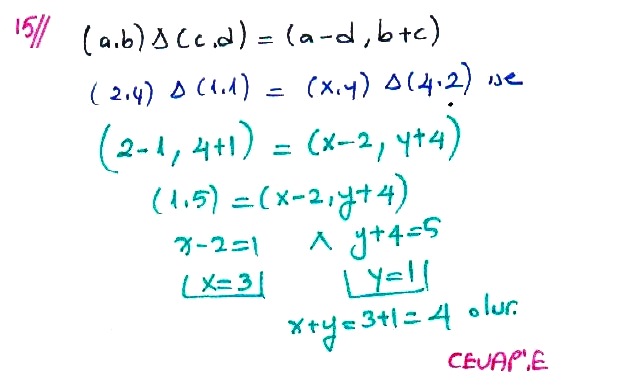 15// (a.b) Δ (c.d) = (a-d, b+c)
(2.4) Δ (1.1) = (x.y) Δ (4.2) ise
(2-1, 4+1) = (x-2, y+4)
(1.5) = (x-2, y+4)
x-2=1 ∧ y+4=5
x=3 y=1
x+y=3+1=4 olur.
CEVAP: E